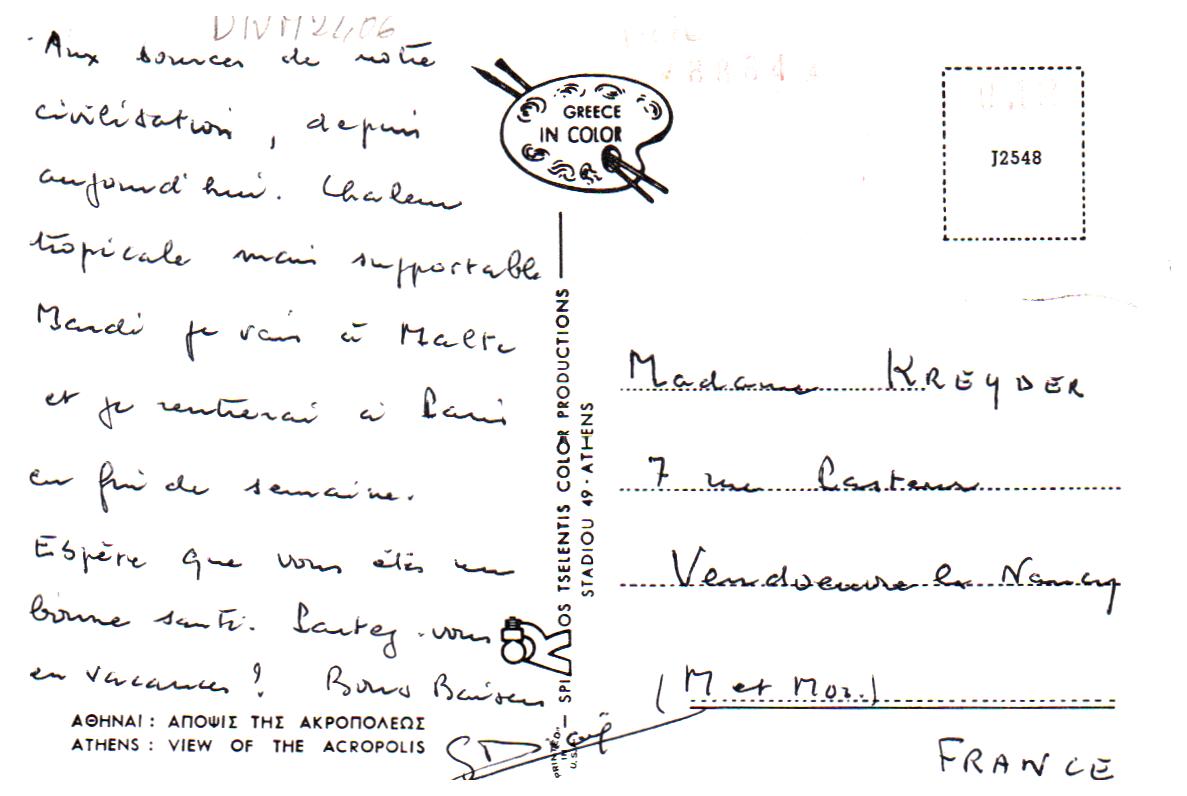 Aux sources de notre
civilisation, depuis
aujourd'hui. Chaleur
tropicale mais supportable
Mardi je vais à Malte
et je rentrerai à Paris
en fin de semaine.
Espère que vous êtes en
bonne santé. Partez-vous
en vacances? Bons Baisers
ΑΘΗΝΑΙ: ΑΠΟΨΙΣ ΤΗΣ ΑΚΡΟΠΟΛΕΩΣ
ATHENS: VIEW OF THE ACROPOLIS
GREECE
IN COLOR
SPI OS TSELENTIS COLOR PRODUCTIONS
STADIOU 49 - ATHENS
PRINTED IN U.S.A.
J2548
Madame KREYDER
7 rue Pasteur
Vendoeuvre les Nancy
(M et Moz.)
FRANCE